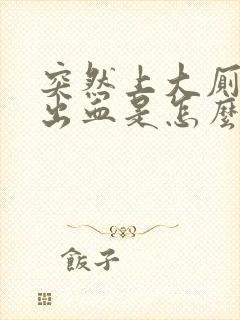 突然上大厕
出血是怎麼
飯子